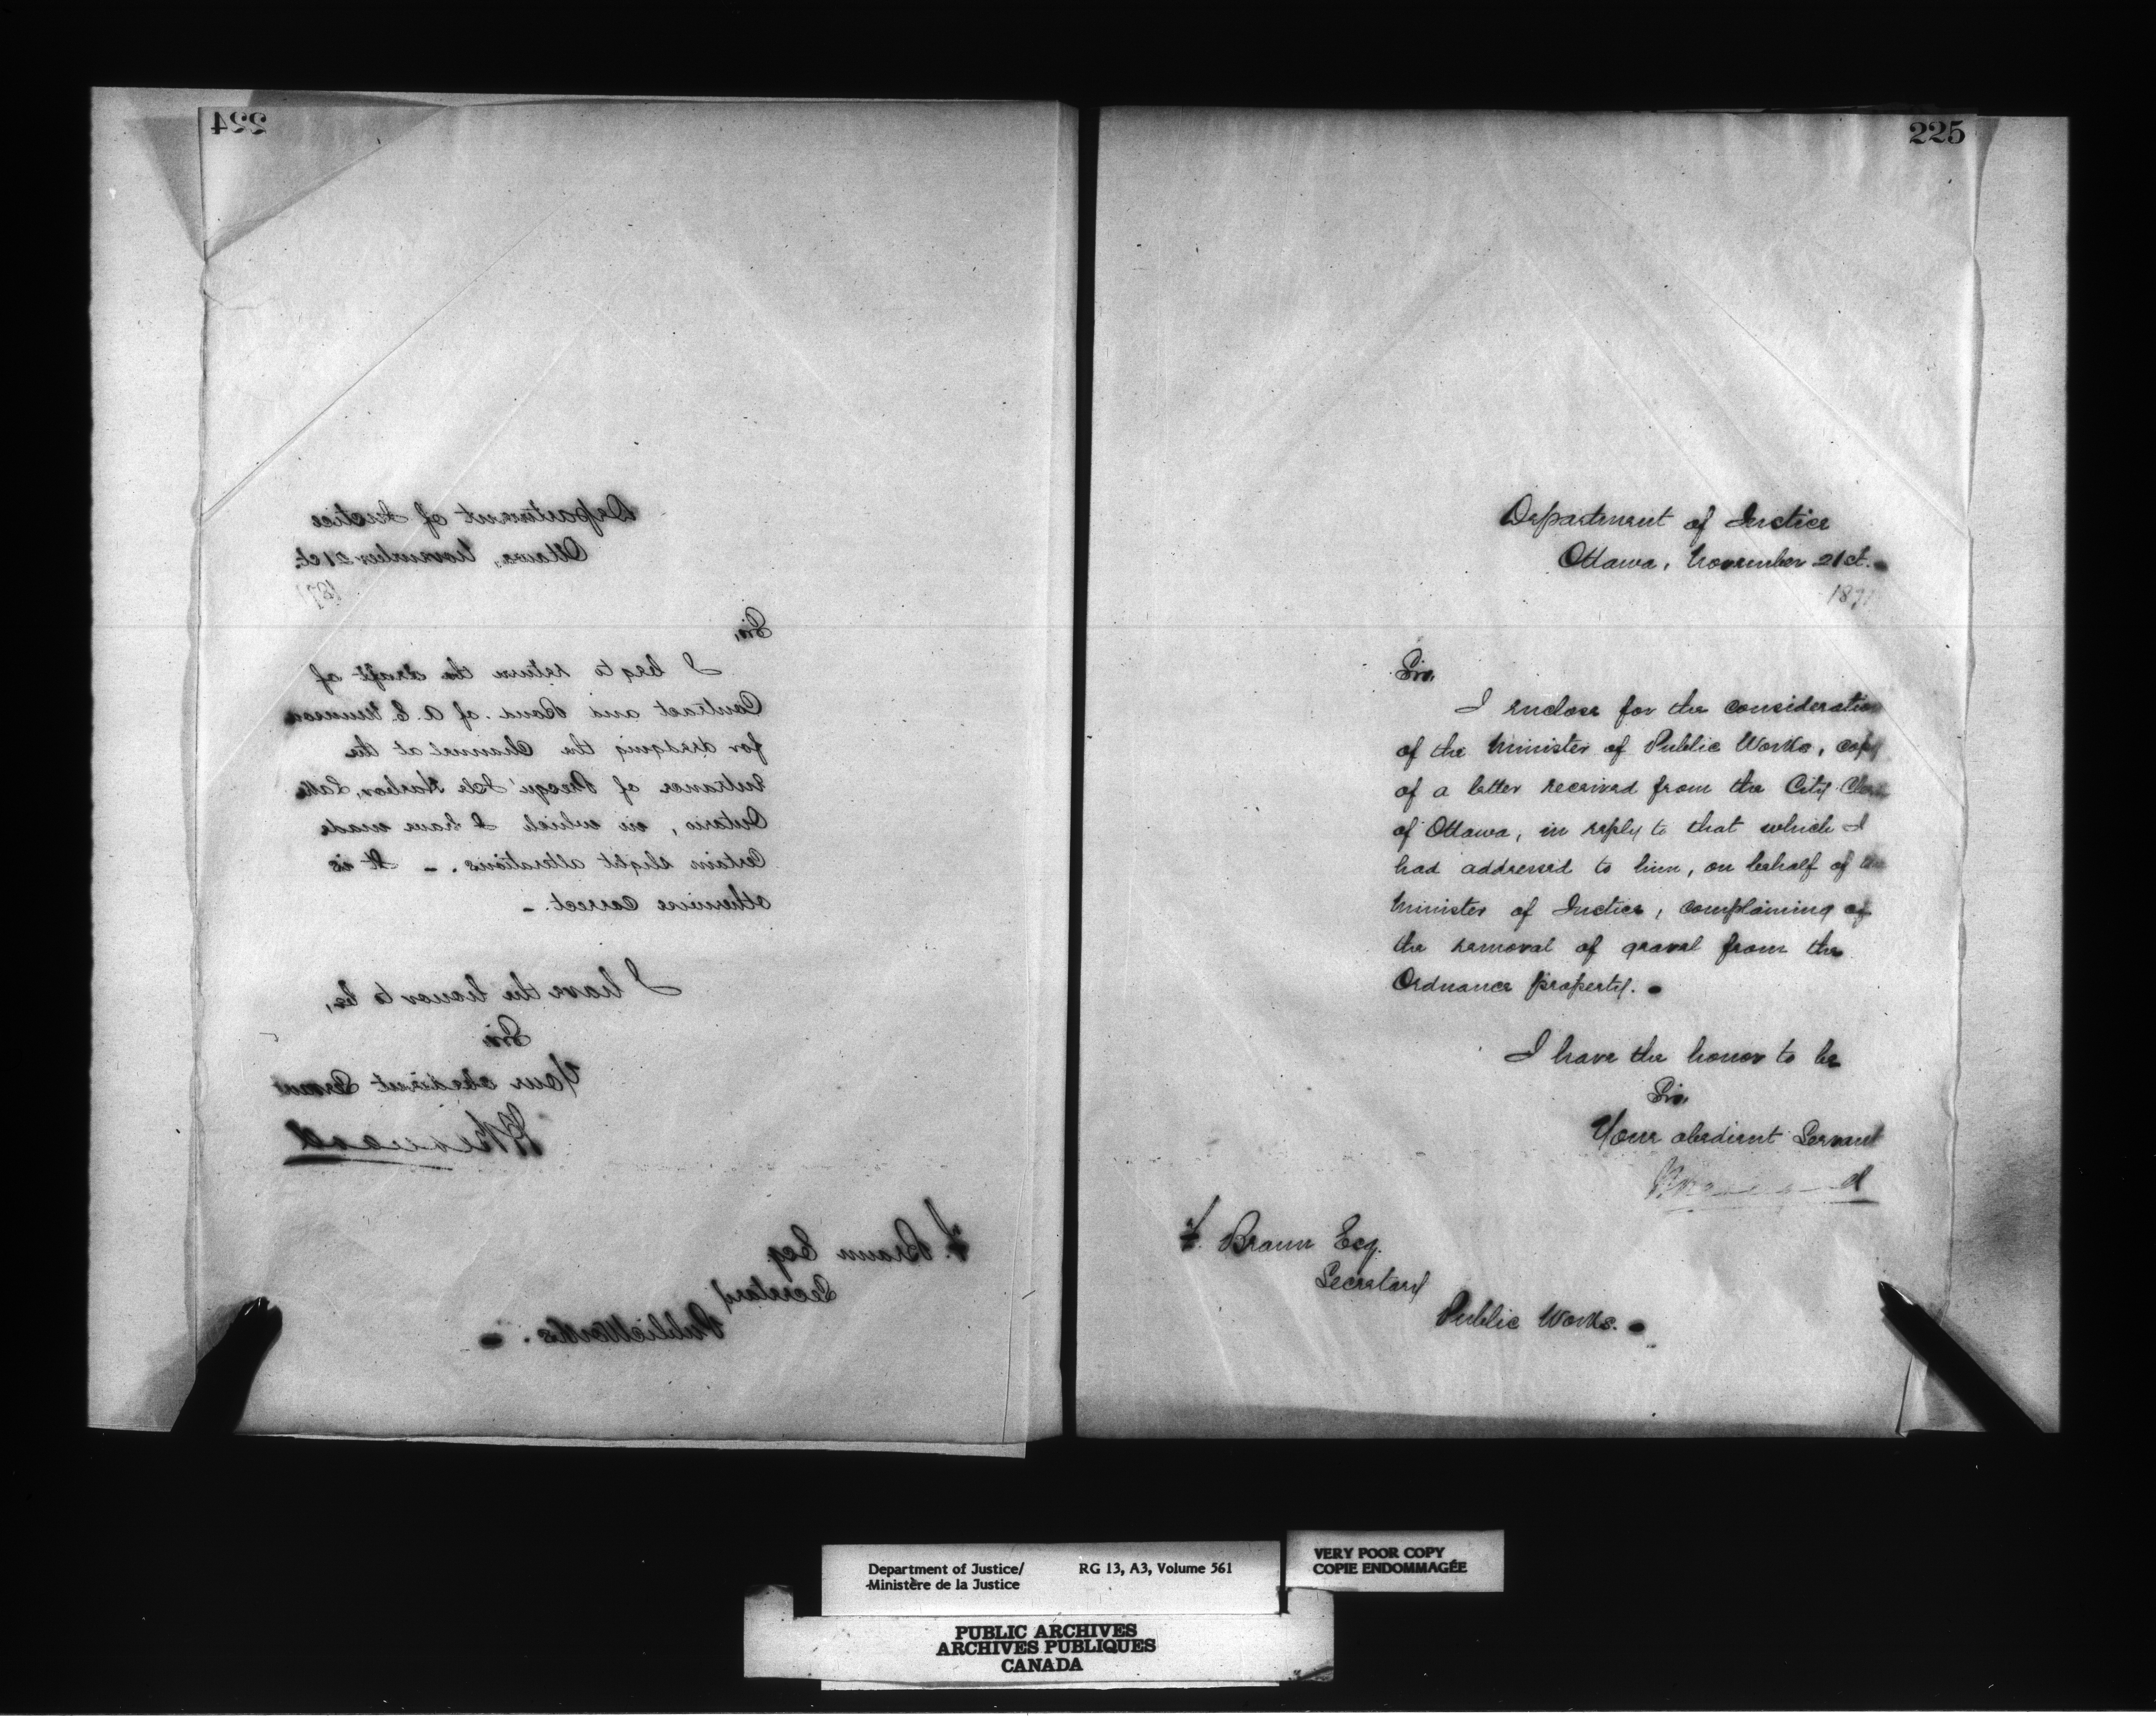 224
Department of Justice
Ottawa, November 21st.
187
Sir,
I beg to return the draft of
Contract and Bond of A. E. Munson
for dredging the Channel at the
Entrance of Presqu'Isle Harbor, Lake
Ontario, in which I have made
Certain slight alterations. - It is
otherwise correct. -
I have the honor to be,
Sir
Your obedient Servant
F. Braun Esq
Secretary
Public Works. -
225
Department of Justice
Ottawa, November 21st. -
1871
Sir,
I enclose for the consideration
of the Minister of Public Works, copy
of a letter received from the City Clerk
of Ottawa, in reply to that which I
had addressed to him, on behalf of the
Minister of Justice, complaining of
the removal of gravel from the
Ordnance property. -
I have the honor to be
Sir,
Your obedient Servant
F. Braun Esq.
Secretary
Public Works. -
Department of Justice/
Ministère de la Justice
RG 13, A3, Volume 561
VERY POOR COPY
COPIE ENDOMMAGÉE
PUBLIC ARCHIVES
ARCHIVES PUBLIQUES
CANADA